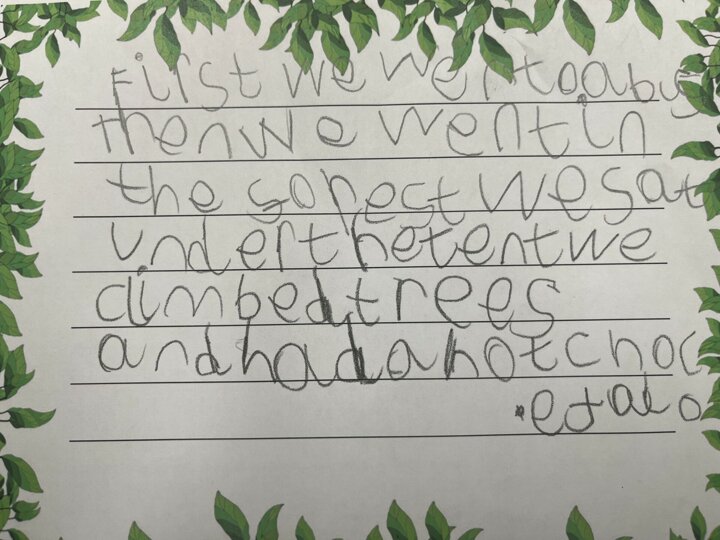 First we went to a bus
then we went in
the forest we sat
under the tent we
climbed trees
and had a hot choc
olate.